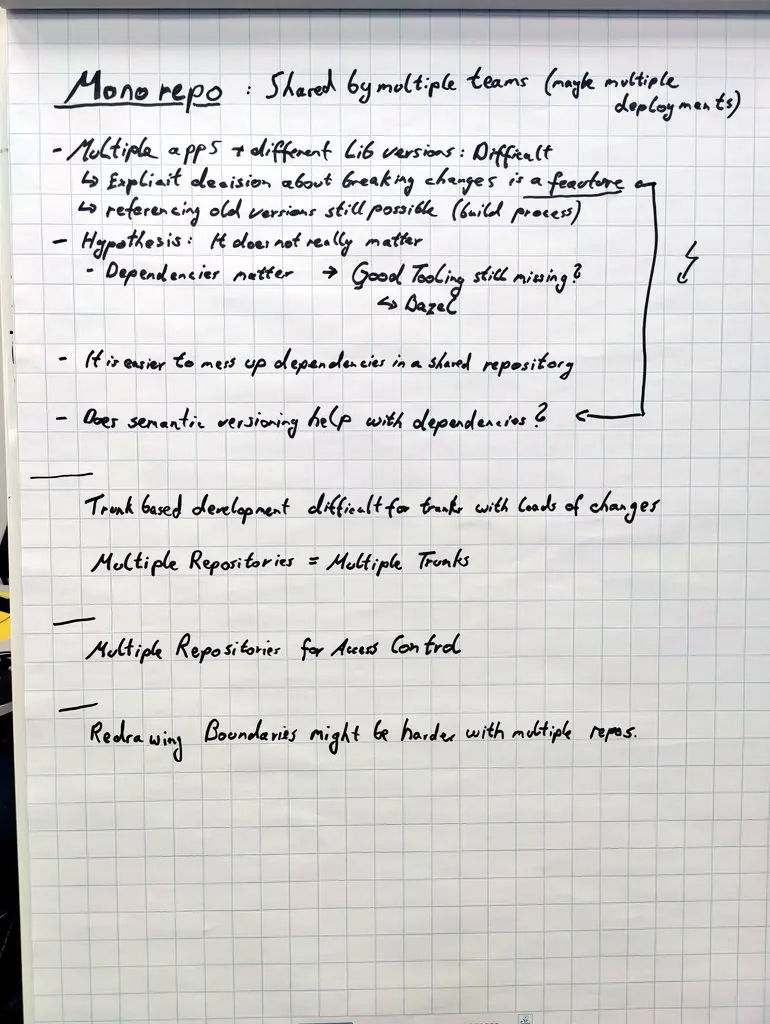 Monorepo : Shared by multiple teams (maybe multiple
deployments)
- Multiple apps + different Lib versions: Difficult
↳ Explicit decision about breaking changes is a feature
↳ referencing old versions still possible (build process)
- Hypothesis: It does not really matter
- Dependencies matter → Good Tooling still missing?
↳ Bazel
- It is easier to mess up dependencies in a shared repository
- Does semantic versioning help with dependencies?
Trunk based development difficult for trunks with loads of changes
Multiple Repositories = Multiple Trunks
Multiple Repositories for Access Control
Redrawing Boundaries might be harder with multiple repos.